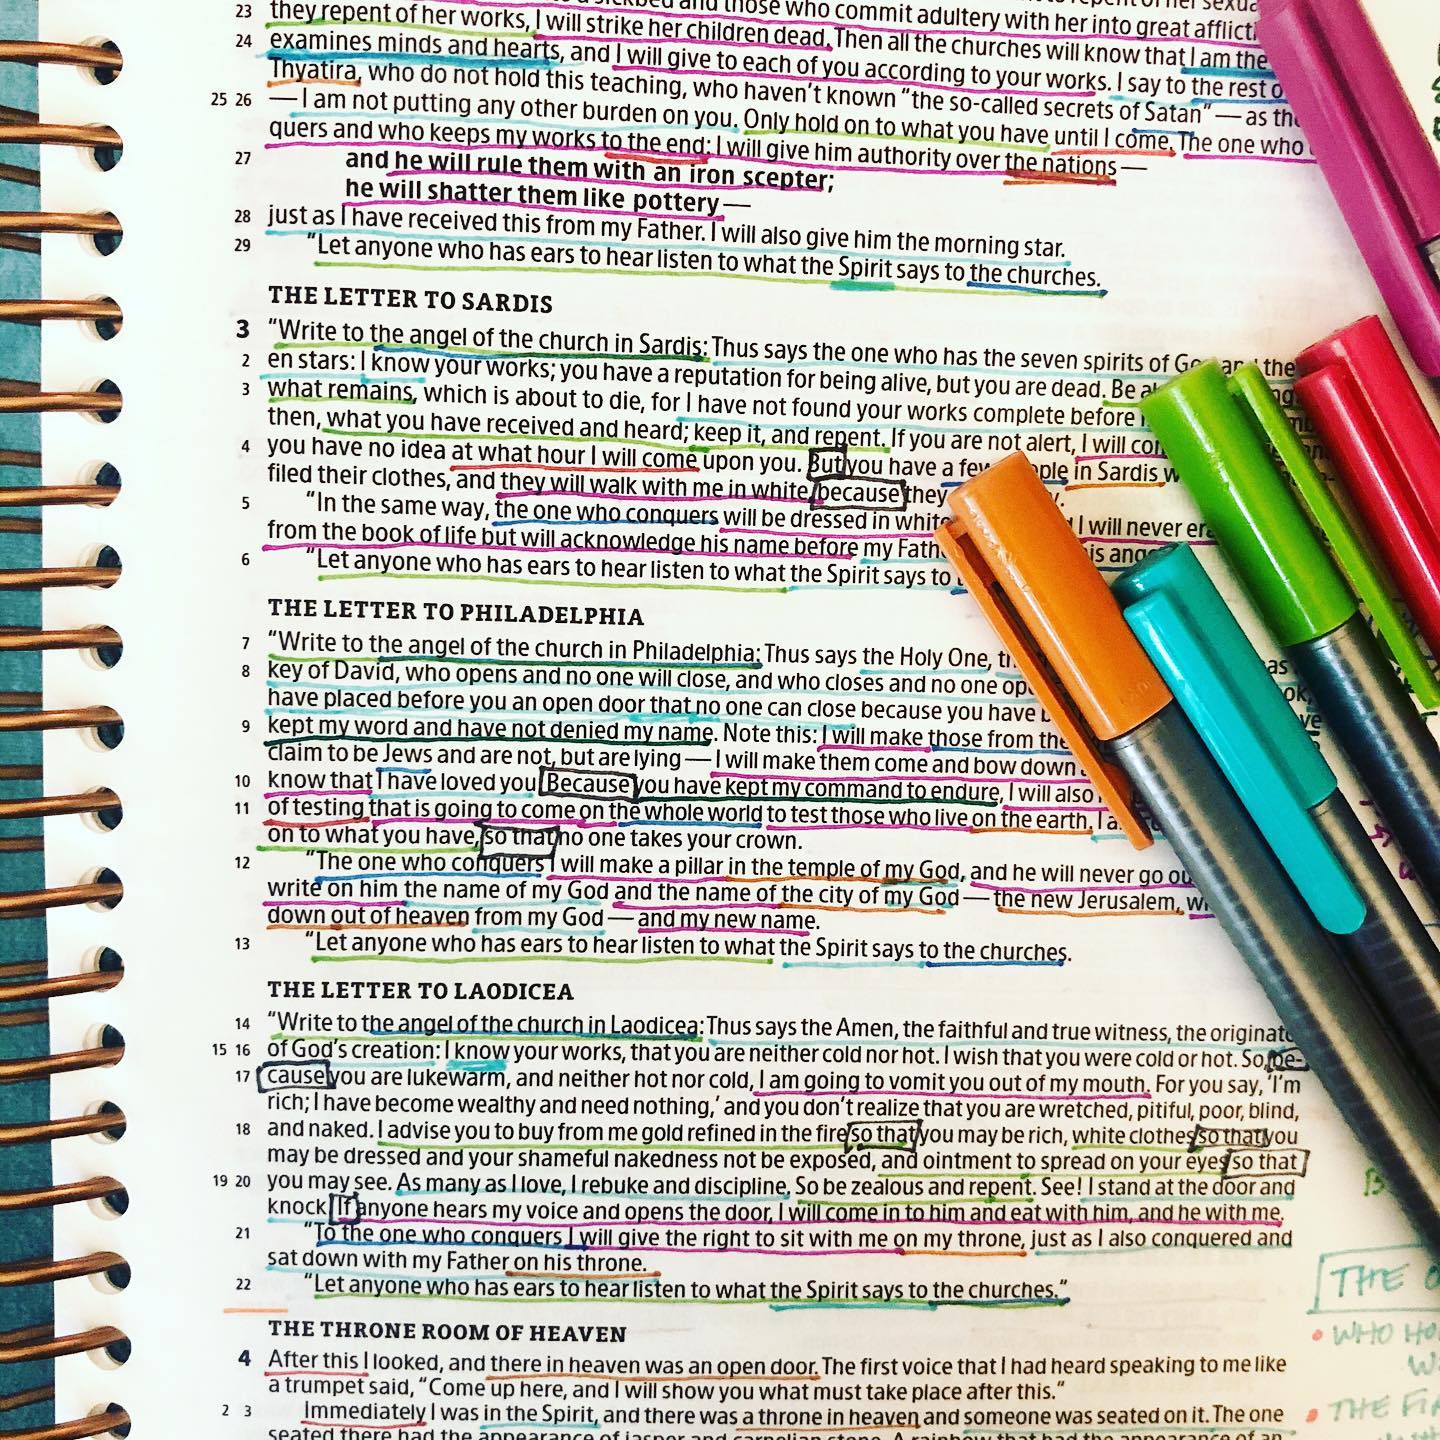 those who commit adultery with her into great afflicti
23 they repent of her works, I will strike her children dead. Then all the churches will know that I am the
24 examines minds and hearts, and I will give to each of you according to your works. I say to the rest o
Thyatira, who do not hold this teaching, who haven't known "the so-called secrets of Satan" — as the
25 26 — I am not putting any other burden on you. Only hold on to what you have until I come. The one who
quers and who keeps my works to the end: I will give him authority over the nations —
27 and he will rule them with an iron scepter;
he will shatter them like pottery —
28 just as I have received this from my Father. I will also give him the morning star.
29 "Let anyone who has ears to hear listen to what the Spirit says to the churches.
THE LETTER TO SARDIS
3 "Write to the angel of the church in Sardis: Thus says the one who has the seven spirits of God and the
2 en stars: I know your works; you have a reputation for being alive, but you are dead. Be
3 what remains, which is about to die, for I have not found your works complete before
then, what you have received and heard; keep it, and repent. If you are not alert, I will
4 you have no idea at what hour I will come upon you. But you have a few people in Sardis
filed their clothes, and they will walk with me in white, because they
5 "In the same way, the one who conquers will be dressed in white I will never
from the book of life but will acknowledge his name before my Father his
6 "Let anyone who has ears to hear listen to what the Spirit says to
THE LETTER TO PHILADELPHIA
7 "Write to the angel of the church in Philadelphia: Thus says the Holy One,
8 key of David, who opens and no one will close, and who closes and no one
have placed before you an open door that no one can close because you have
9 kept my word and have not denied my name. Note this: I will make those from the
claim to be Jews and are not, but are lying — I will make them come and bow down
10 know that I have loved you. Because you have kept my command to endure, I will also
11 of testing that is going to come on the whole world to test those who live on the earth. I
on to what you have, so that no one takes your crown.
12 "The one who conquers I will make a pillar in the temple of my God, and he will never go
write on him the name of my God and the name of the city of my God — the new Jerusalem,
down out of heaven from my God — and my new name.
13 "Let anyone who has ears to hear listen to what the Spirit says to the churches.
THE LETTER TO LAODICEA
14 "Write to the angel of the church in Laodicea: Thus says the Amen, the faithful and true witness, the originat
15 16 of God's creation: I know your works, that you are neither cold nor hot. I wish that you were cold or hot. So, be-
17 cause you are lukewarm, and neither hot nor cold, I am going to vomit you out of my mouth. For you say, 'I'm
rich; I have become wealthy and need nothing,' and you don't realize that you are wretched, pitiful, poor, blind,
18 and naked. I advise you to buy from me gold refined in the fire so that you may be rich, white clothes so that you
may be dressed and your shameful nakedness not be exposed, and ointment to spread on your eyes so that
19 20 you may see. As many as I love, I rebuke and discipline. So be zealous and repent. See! I stand at the door and
knock. If anyone hears my voice and opens the door, I will come in to him and eat with him, and he with me.
21 "To the one who conquers I will give the right to sit with me on my throne, just as I also conquered and
sat down with my Father on his throne.
22 "Let anyone who has ears to hear listen to what the Spirit says to the churches."
THE THRONE ROOM OF HEAVEN
4 After this I looked, and there in heaven was an open door. The first voice that I had heard speaking to me like
a trumpet said, "Come up here, and I will show you what must take place after this."
2 3 Immediately I was in the Spirit, and there was a throne in heaven and someone was seated on it. The one
seated there had the appearance of jasper and carnelian stone. A rainbow that had the appearance of an
THE
WHO
THE